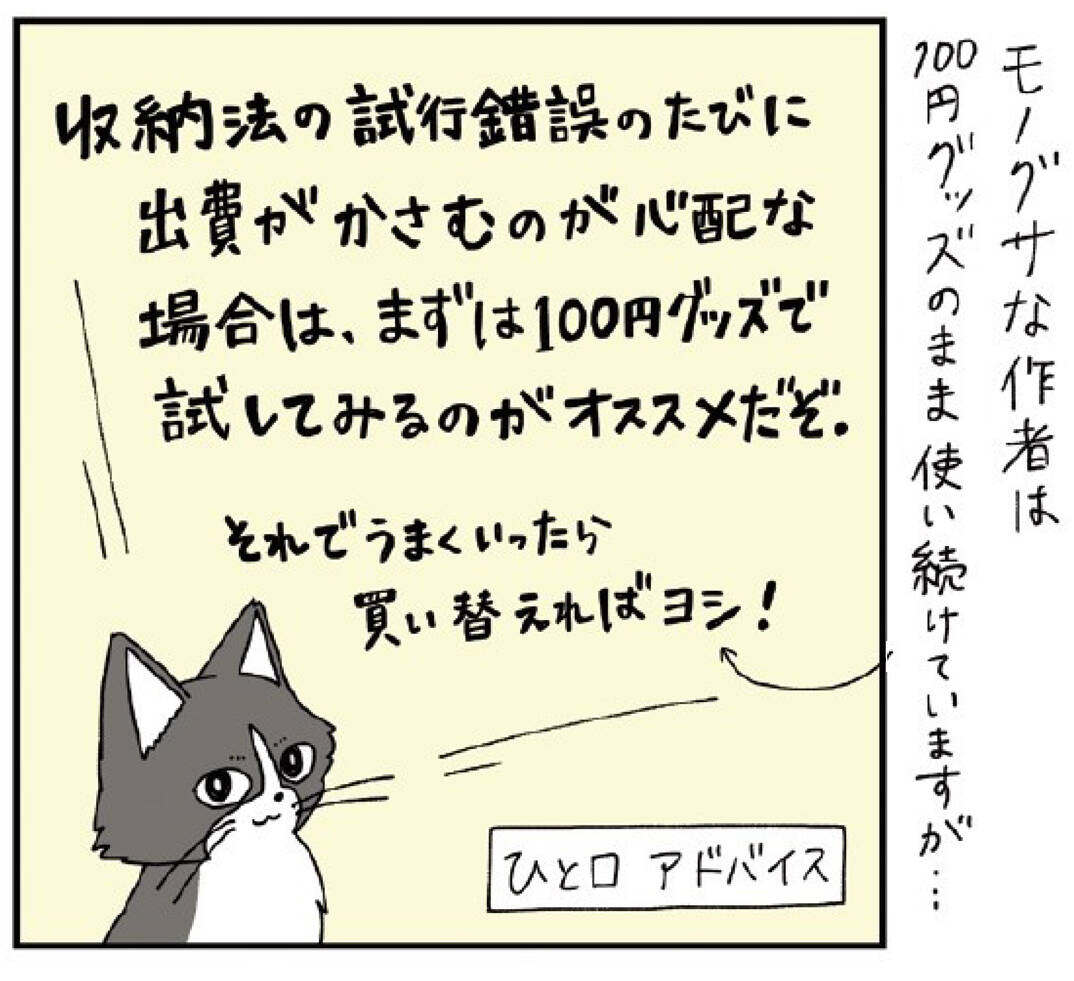 モノグサな作者は
100円グッズのまま使い続けていますが…
収納法の試行錯誤のたびに
出費がかさむのが心配な
場合は、まずは100円グッズで
試してみるのがオススメだぞ.
それでうまくいったら
買い替えればヨシ!
ひと口 アドバイス